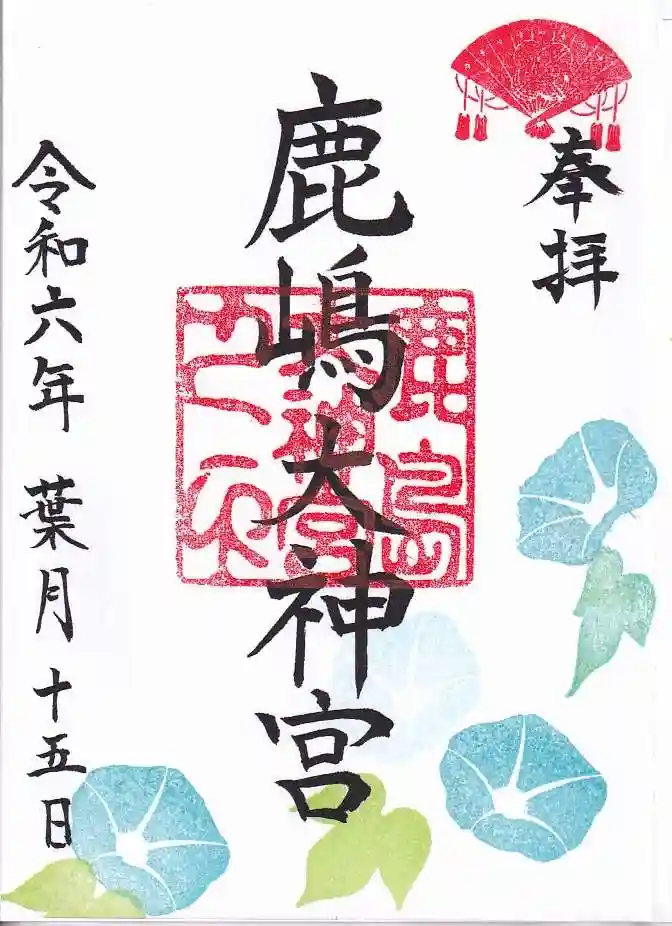 奉拝
鹿嶋大神宮
鹿島
神宮
令和六年 葉月 十五日